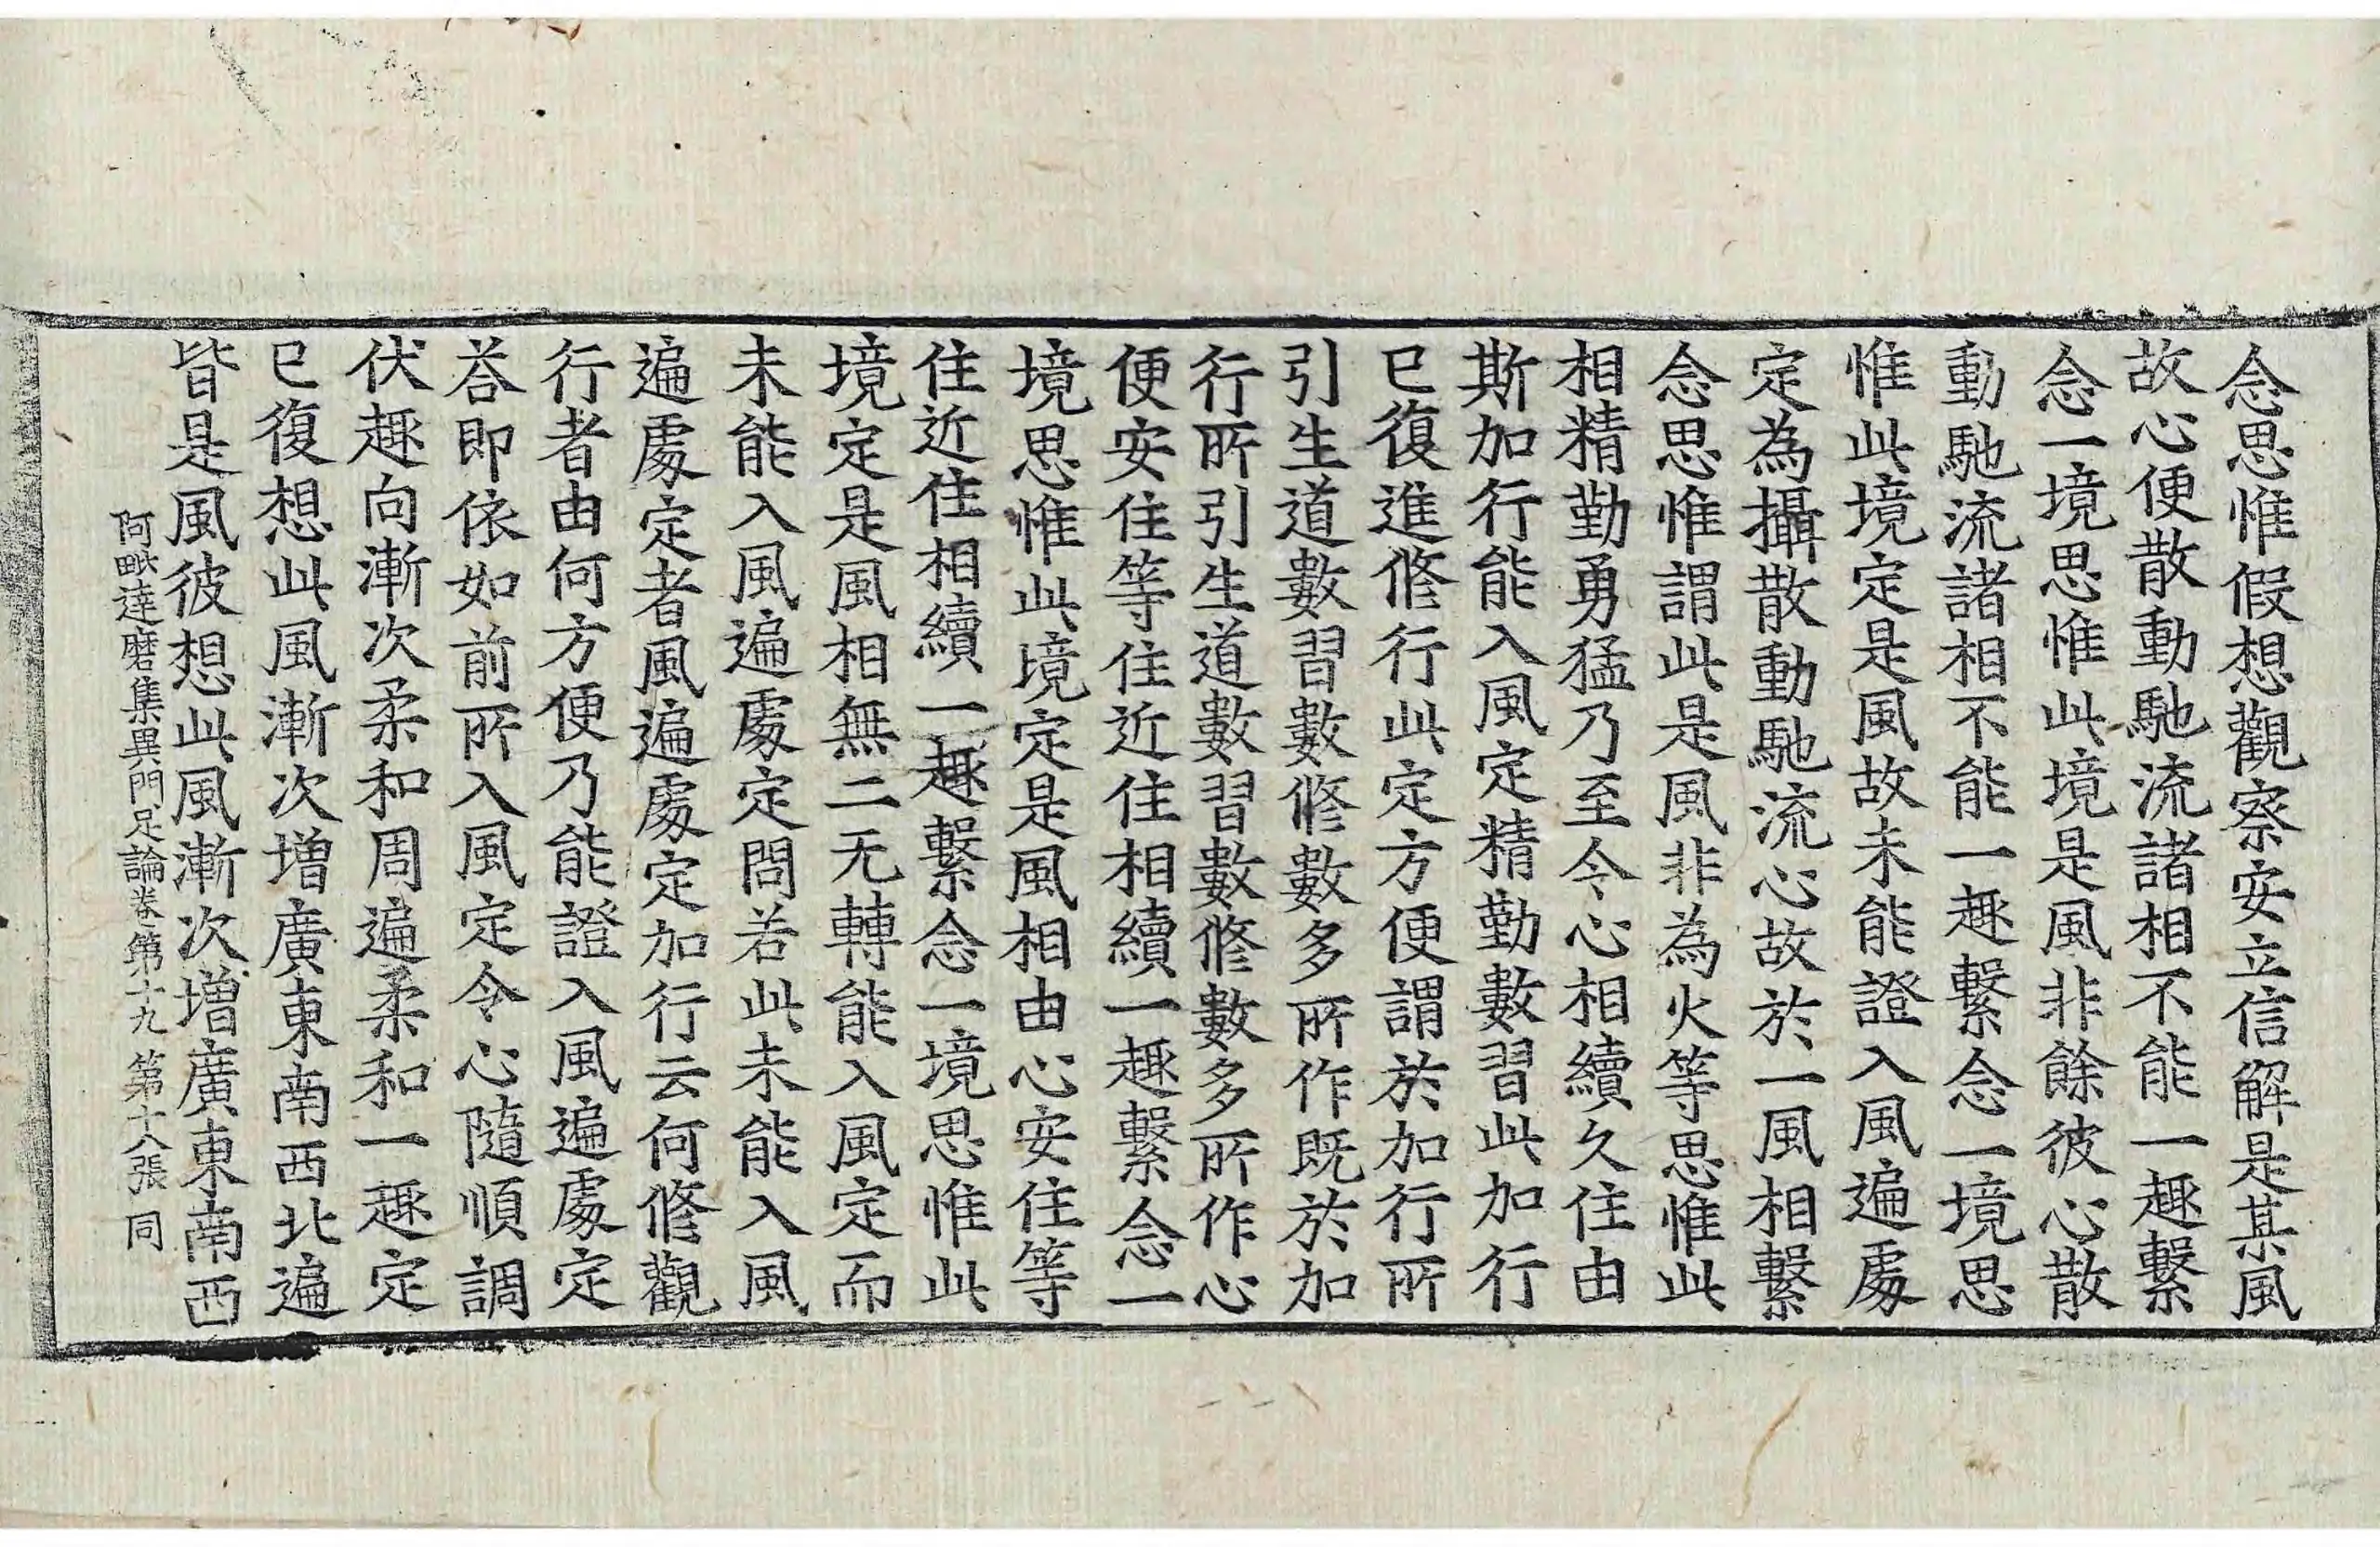 念思惟假想觀察安立信解是某風
故心便散動馳流諸相不能一趣繫
念一境思惟此境是風非餘彼心散
動馳流諸相不能一趣繫念一境思
惟此境定是風故未能證入風遍處
定為攝散動馳流心故於一風相繫
念思惟謂此是風非為火等思惟此
相精勤勇猛乃至令心相續久住由
斯加行能入風定精勤數習此加行
已復進修行此定方便謂於加行所
引生道數習數修數多所作既於加
行所引生道數習數修數多所作心
便安住等住近住相續一趣繫念一
境思惟此境定是風相由心安住等
住近住相續一趣繫念一境思惟此
境定是風相無二无轉能入風定而
未能入風遍處定問若此未能入風
遍處定者風遍處定加行云何修觀
行者由何方便乃能證入風遍處定
荅即依如前所入風定令心隨順調
伏趣向漸次柔和周遍柔和一趣定
已復想此風漸次增廣東南西北遍
皆是風彼想此風漸次增廣東南西
阿毗達磨集異門足論卷第十九 第十八張 同